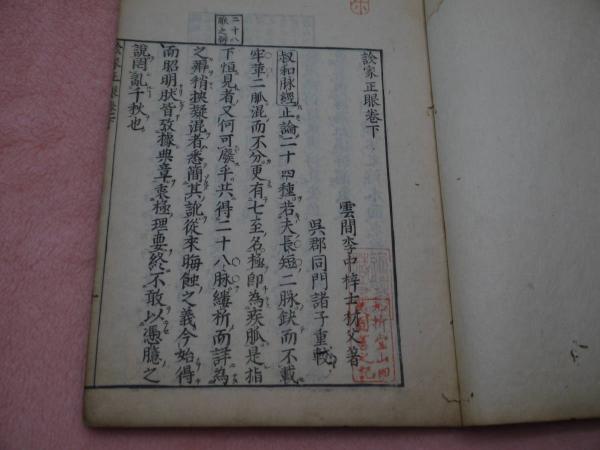 診家正眼卷下
雲間李中梓士材父著
吳郡同門諸子重較
二十八
脈之辨
叔和脉經止論二十四種若夫長短二脉缺而不載
牢革二脈混而不分更有七至名極即為疾脈是指
下恒見者又何可廢乎共得二十八脉縷析而詳為
之辨稍挾疑混者悉簡其訛從來晦蝕之義今始得
而昭明肰皆攷據典章衷極理要終不敢以憑臆之
說罔亂千秋也